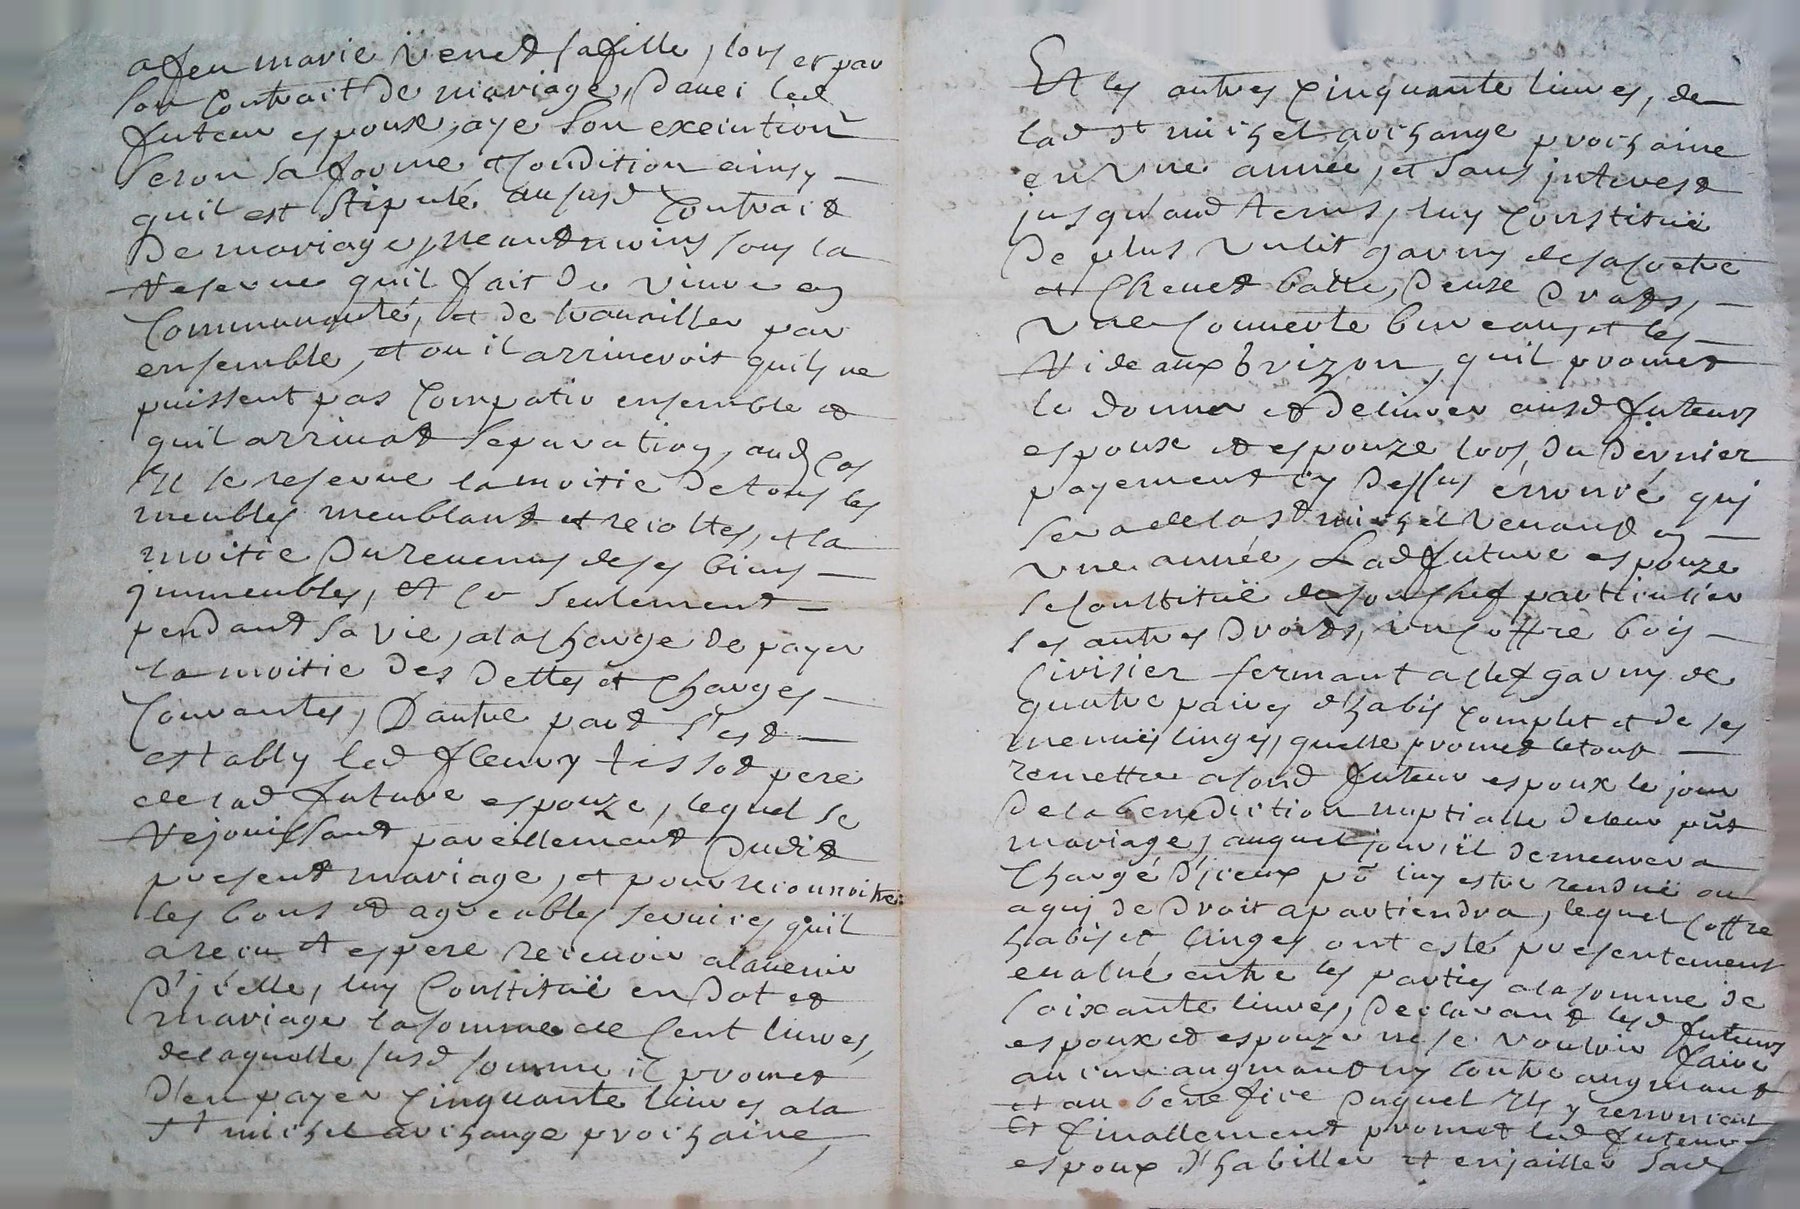 a feu marie Venet sa fille, lors et par
son Contrait de mariage, Avec led
futeur espoux, aye son execution
selon sa forme et Condition ainsy
quil est stipulé aususd Contrait
De mariage, neantmoins sous la
reserve quil fait de vivre en
Communauté, et de travailler par
ensemble, et ou il arriveroit quils ne
puissent pas Compatir ensemble et
quil arrivat separation, aud Cas
Il se reserve la moitie de tous les
meubles meublant et recoltes, et la
moitie du revenus de ses biens
jmmeubles, et ce seulement
pendant sa vie, ala charge de payer
la moitie des dettes et Charges
Courantes, D'autre part s'est
estably led fleury tissot pere
de lad future espouze, lequel se
rejouissant pareillement dudit
present mariage, et pour reconnoitre
les bons et agreables services quil
a recu et espere recevoir alavenir
d'jcelle, luy Constituë en Dot et
mariage la somme de Cent livres,
de laquelle susd somme il promet
D'en payer Cinquante livres ala
st michel archange prochaine,
Et les autres Cinquante livres, de
lad st michel archange prochaine
en Une année, et sans jnterest
jusqu'aud terms, luy Constituë
De plus Un lit garny de sa Coetre
et Chevet balle, Deux Draps,
Une Couverte bureau, et les
rideaux brizon, quil promet
le donner et delivrer ausd futeurs
espoux et espouze lors du dernier
payement cy dessus énoncé quj
sera de la st michel Venant en
Une année, Lad future espouze
se Constituë de son Chef particulier
ses autres Droits, un Coffre bois
Cirisier fermant a Clef garny de
quatre paires d'habis Complet et de ses
menuës linges, quelle promet le tout
remettre a sond futeur espoux le jour
De la benediction nuptialle de leur pñt
mariage, auquel jour jl demeurera
Chargé d'jceux pō luy estre renduë ou
a quj de Droit apartiendra, lequel Coffre
habis et linges ont estés presentement
evalué entre les parties a la somme de
soixante livres, Declarant lesd futeurs
espoux et espouze ne se vouloir faire
aucun augmant ny Contre augmant
et au benefice Duquel Ils y renoncent
Et finallement promet led futeur
espoux d'habiller et enjailler sad